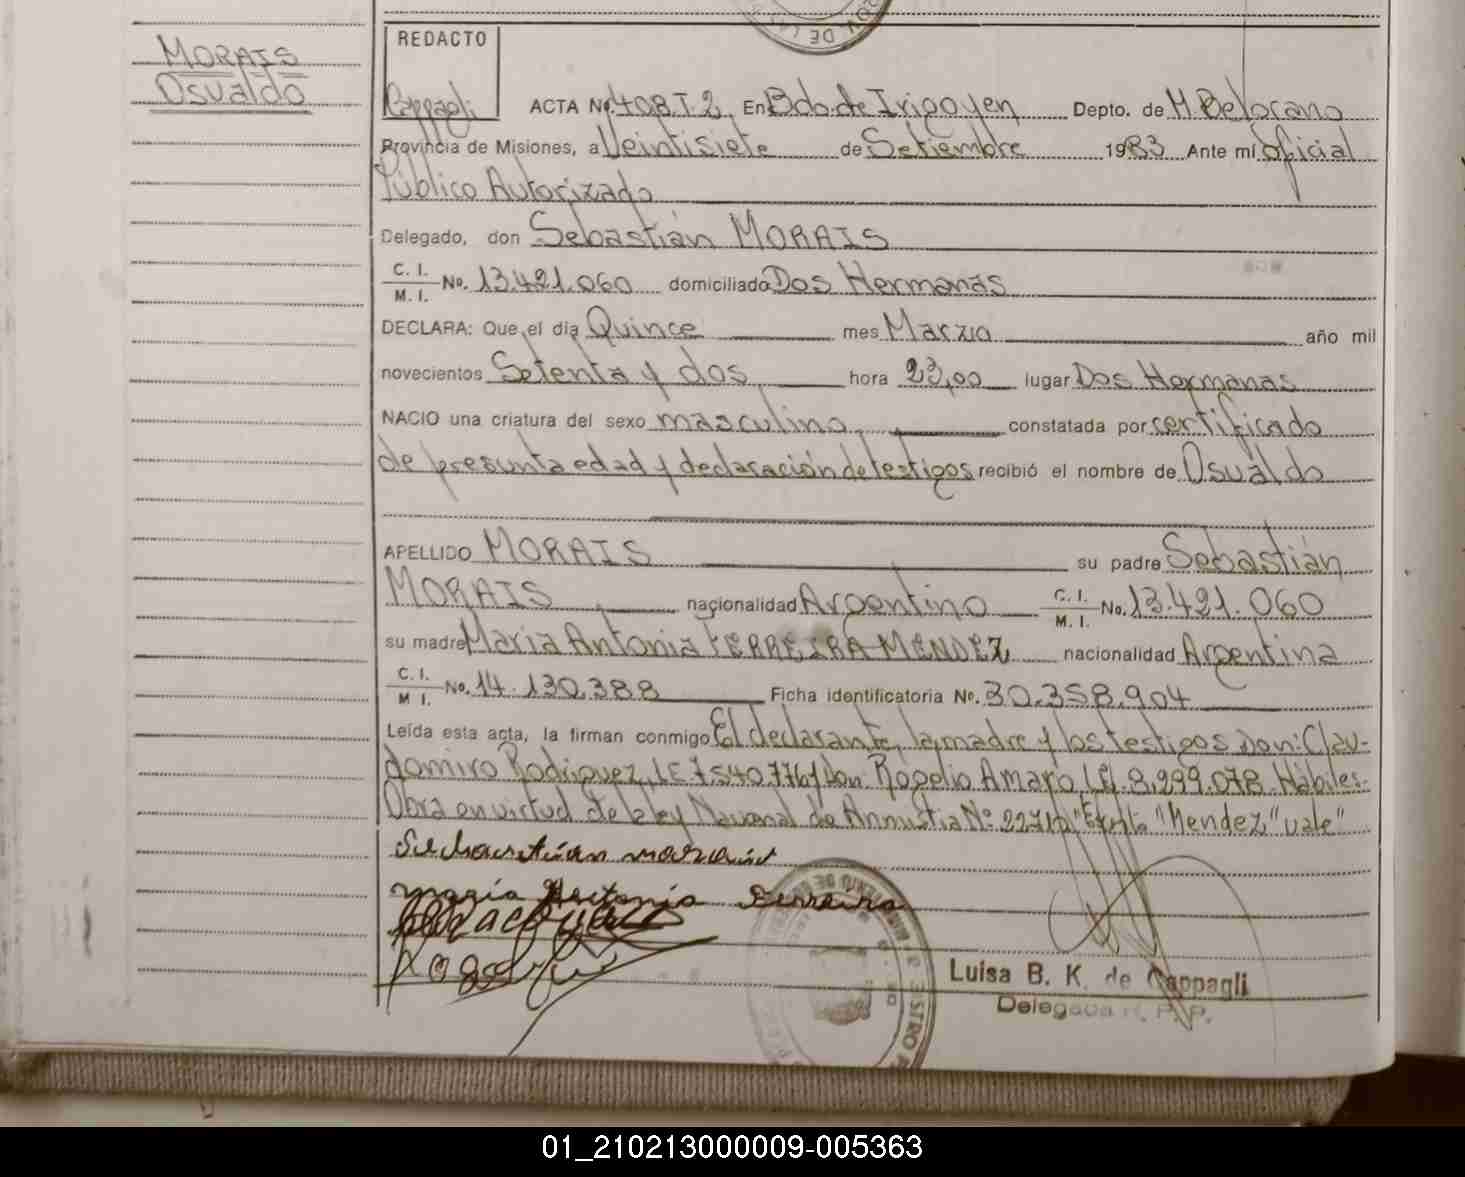 MORAIS
Osvaldo
REDACTO
Cappagli
ACTA No. 408.T.2 En Bdo de Irigoyen Depto. de M. Belgrano
Provincia de Misiones, a Veintisiete de Setiembre 1983 Ante mí Oficial
Público Autorizado
Delegado, don Sebastián MORAIS
C. I.
M. I. No. 13.421.060 domiciliado Dos Hermanas
DECLARA: Que el día Quince mes Marzo año mil
novecientos Setenta y dos hora 23,00 lugar Dos Hermanas
NACIO una criatura del sexo masculino constatada por certificado
de presunta edad y declaración de testigos recibió el nombre de Osvaldo
APELLIDO MORAIS su padre Sebastián
MORAIS nacionalidad Argentino C. I. M. I. No. 13.421.060
su madre Maria Antonia FERREIRA MENDEZ nacionalidad Argentina
C. I.
M. I. No. 14.130.388 Ficha identificatoria No. 30.358.904
Leída esta acta, la firman conmigo El declarante, la madre y los testigos Don: Clau-
domiro Rodriguez, LE 7.540.776 y Don Rogelio Amaro, 8.299.078. Hábiles.
Obra en virtud de la ley Nacional de Amnistia Nº "Mendez" vale"
Sebastian morais
maria Antonia Ferreira
Luisa B. K. de Cappagli
Delegada R. P. P.
01_210213000009-005363